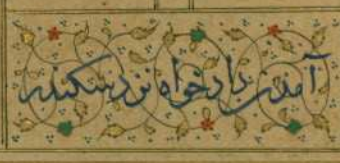 آمدن دادخواه نزد سکندر